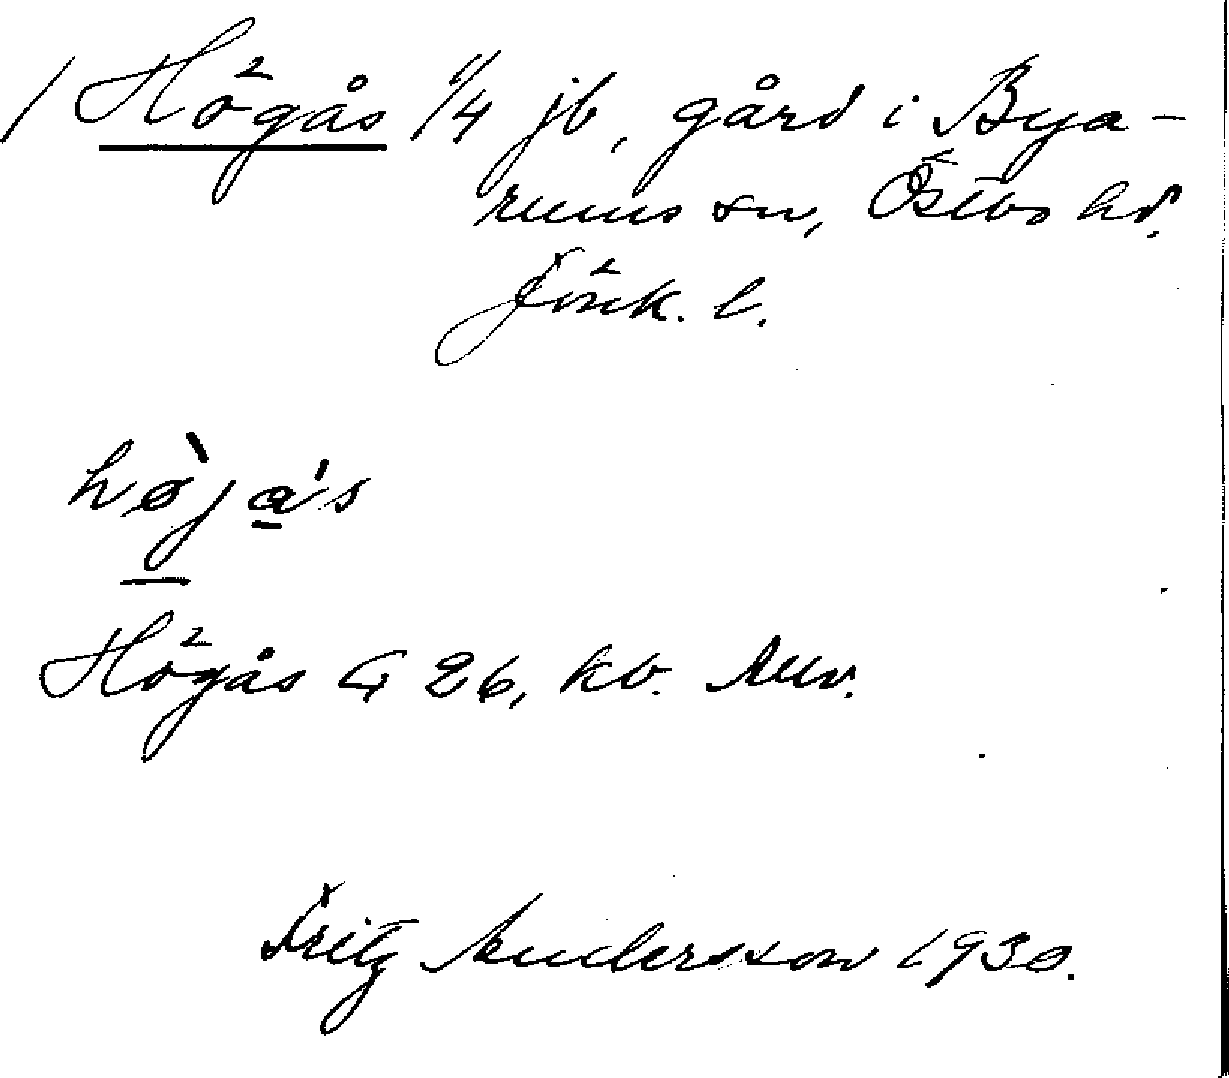 / Högås 1/4 jb, gård i Bya-
rums sn, Östbo hd.
Jönk. l.
högås G 26, kb.
Fritz Andersson 1930.